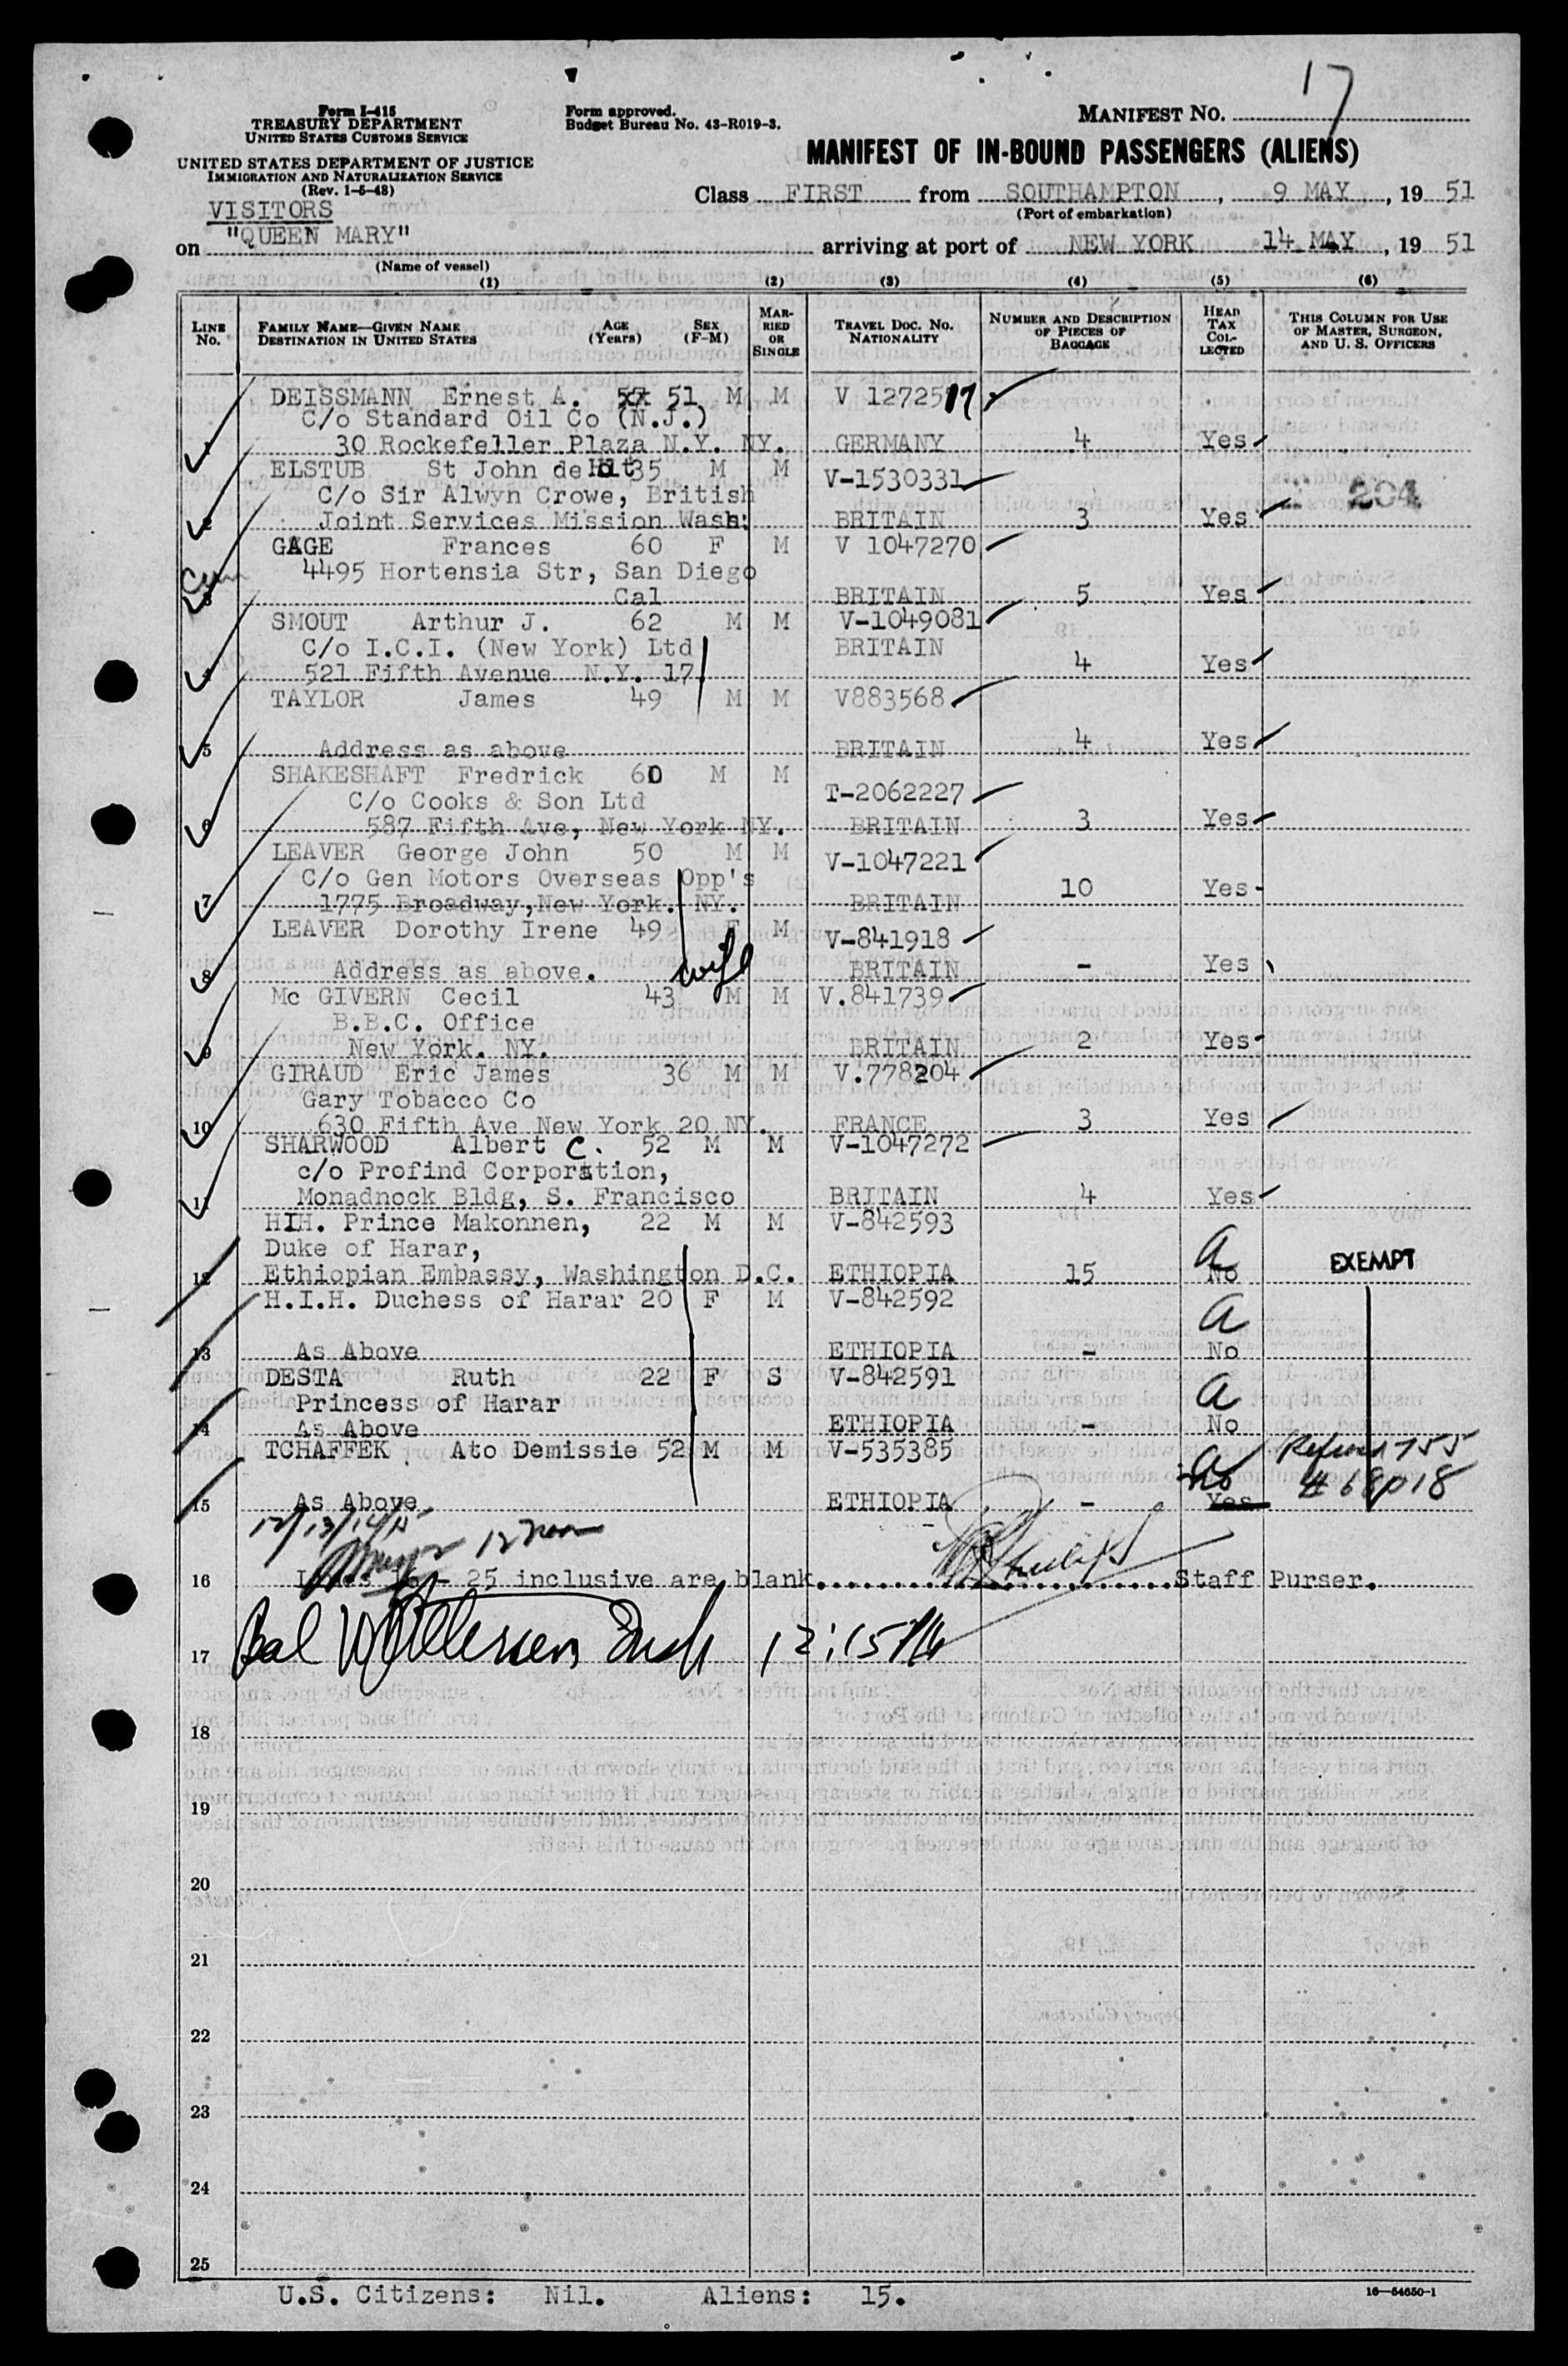 17
Form I-415
TREASURY DEPARTMENT
UNITED STATES CUSTOMS SERVICE
Form approved.
Budget Bureau No. 43-R019-3.
MANIFEST No.
UNITED STATES DEPARTMENT OF JUSTICE
IMMIGRATION AND NATURALIZATION SERVICE
(Rev. 1-5-48)
MANIFEST OF IN-BOUND PASSENGERS (ALIENS)
VISITORS
Class FIRST from SOUTHAMPTON, 9 MAY, 19 51
(Port of embarkation)
on "QUEEN MARY" arriving at port of NEW YORK 14 MAY, 19 51
(Name of vessel)
(1) (2) (3) (4) (5) (6)
LINE No. FAMILY NAME—GIVEN NAME DESTINATION IN UNITED STATES AGE (Years) SEX (F-M) MARRIED OR SINGLE TRAVEL DOC. No. NATIONALITY NUMBER AND DESCRIPTION OF PIECES OF BAGGAGE HEAD TAX COLLECTED THIS COLUMN FOR USE OF MASTER, SURGEON, AND U. S. OFFICERS
DEISSMANN Ernest A. 51 M M V 1272517
C/o Standard Oil Co (N.J.)
1 30 Rockefeller Plaza N.Y. NY. GERMANY 4 Yes
ELSTUB St John de 35 M M V-1530331
C/o Sir Alwyn Crowe, British 204
2 Joint Services Mission Wash: BRITAIN 3 Yes
GAGE Frances 60 F M V 1047270
4495 Hortensia Str, San Diego
3 Cal BRITAIN 5 Yes
SMOUT Arthur J. 62 M M V-1049081
C/o I.C.I. (New York) Ltd BRITAIN
4 521 Fifth Avenue N.Y. 17. 4 Yes
TAYLOR James 49 M M V883568
5 Address as above BRITAIN 4 Yes
SHAKESHAFT Fredrick 60 M M
C/o Cooks & Son Ltd T-2062227
6 587 Fifth Ave, New York NY. BRITAIN 3 Yes
LEAVER George John 50 M M V-1047221
C/o Gen Motors Overseas Opp's
7 1775 Broadway, New York. NY. BRITAIN 10 Yes
LEAVER Dorothy Irene 49 F M V-841918
wife
8 Address as above. BRITAIN - Yes
Mc GIVERN Cecil 43 M M V.841739
B.B.C. Office
9 New York. NY. BRITAIN 2 Yes
GIRAUD Eric James 36 M M V.778204
Gary Tobacco Co
10 630 Fifth Ave New York 20 NY. FRANCE 3 Yes
SHARWOOD Albert C. 52 M M V-1047272
c/o Profind Corporation,
11 Monadnock Bldg, S. Francisco BRITAIN 4 Yes
HIH. Prince Makonnen, 22 M M V-842593
Duke of Harar, a
12 Ethiopian Embassy, Washington D.C. ETHIOPIA 15 No EXEMPT
H.I.H. Duchess of Harar 20 F M V-842592
a
13 As Above ETHIOPIA - No
DESTA Ruth 22 F S V-842591
Princess of Harar a
14 As Above ETHIOPIA - No
TCHAFFEK Ato Demissie 52 M M V-535385
a Refund 755
No # 68018
15 As Above ETHIOPIA - Yes
12/13/14/15
12 noon
16 Lines 16 - 25 inclusive are blank. Staff Purser.
17 Bal 12:15 PM
18
19
20
21
22
23
24
25
U.S. Citizens: Nil. Aliens: 15.
16—54650-1